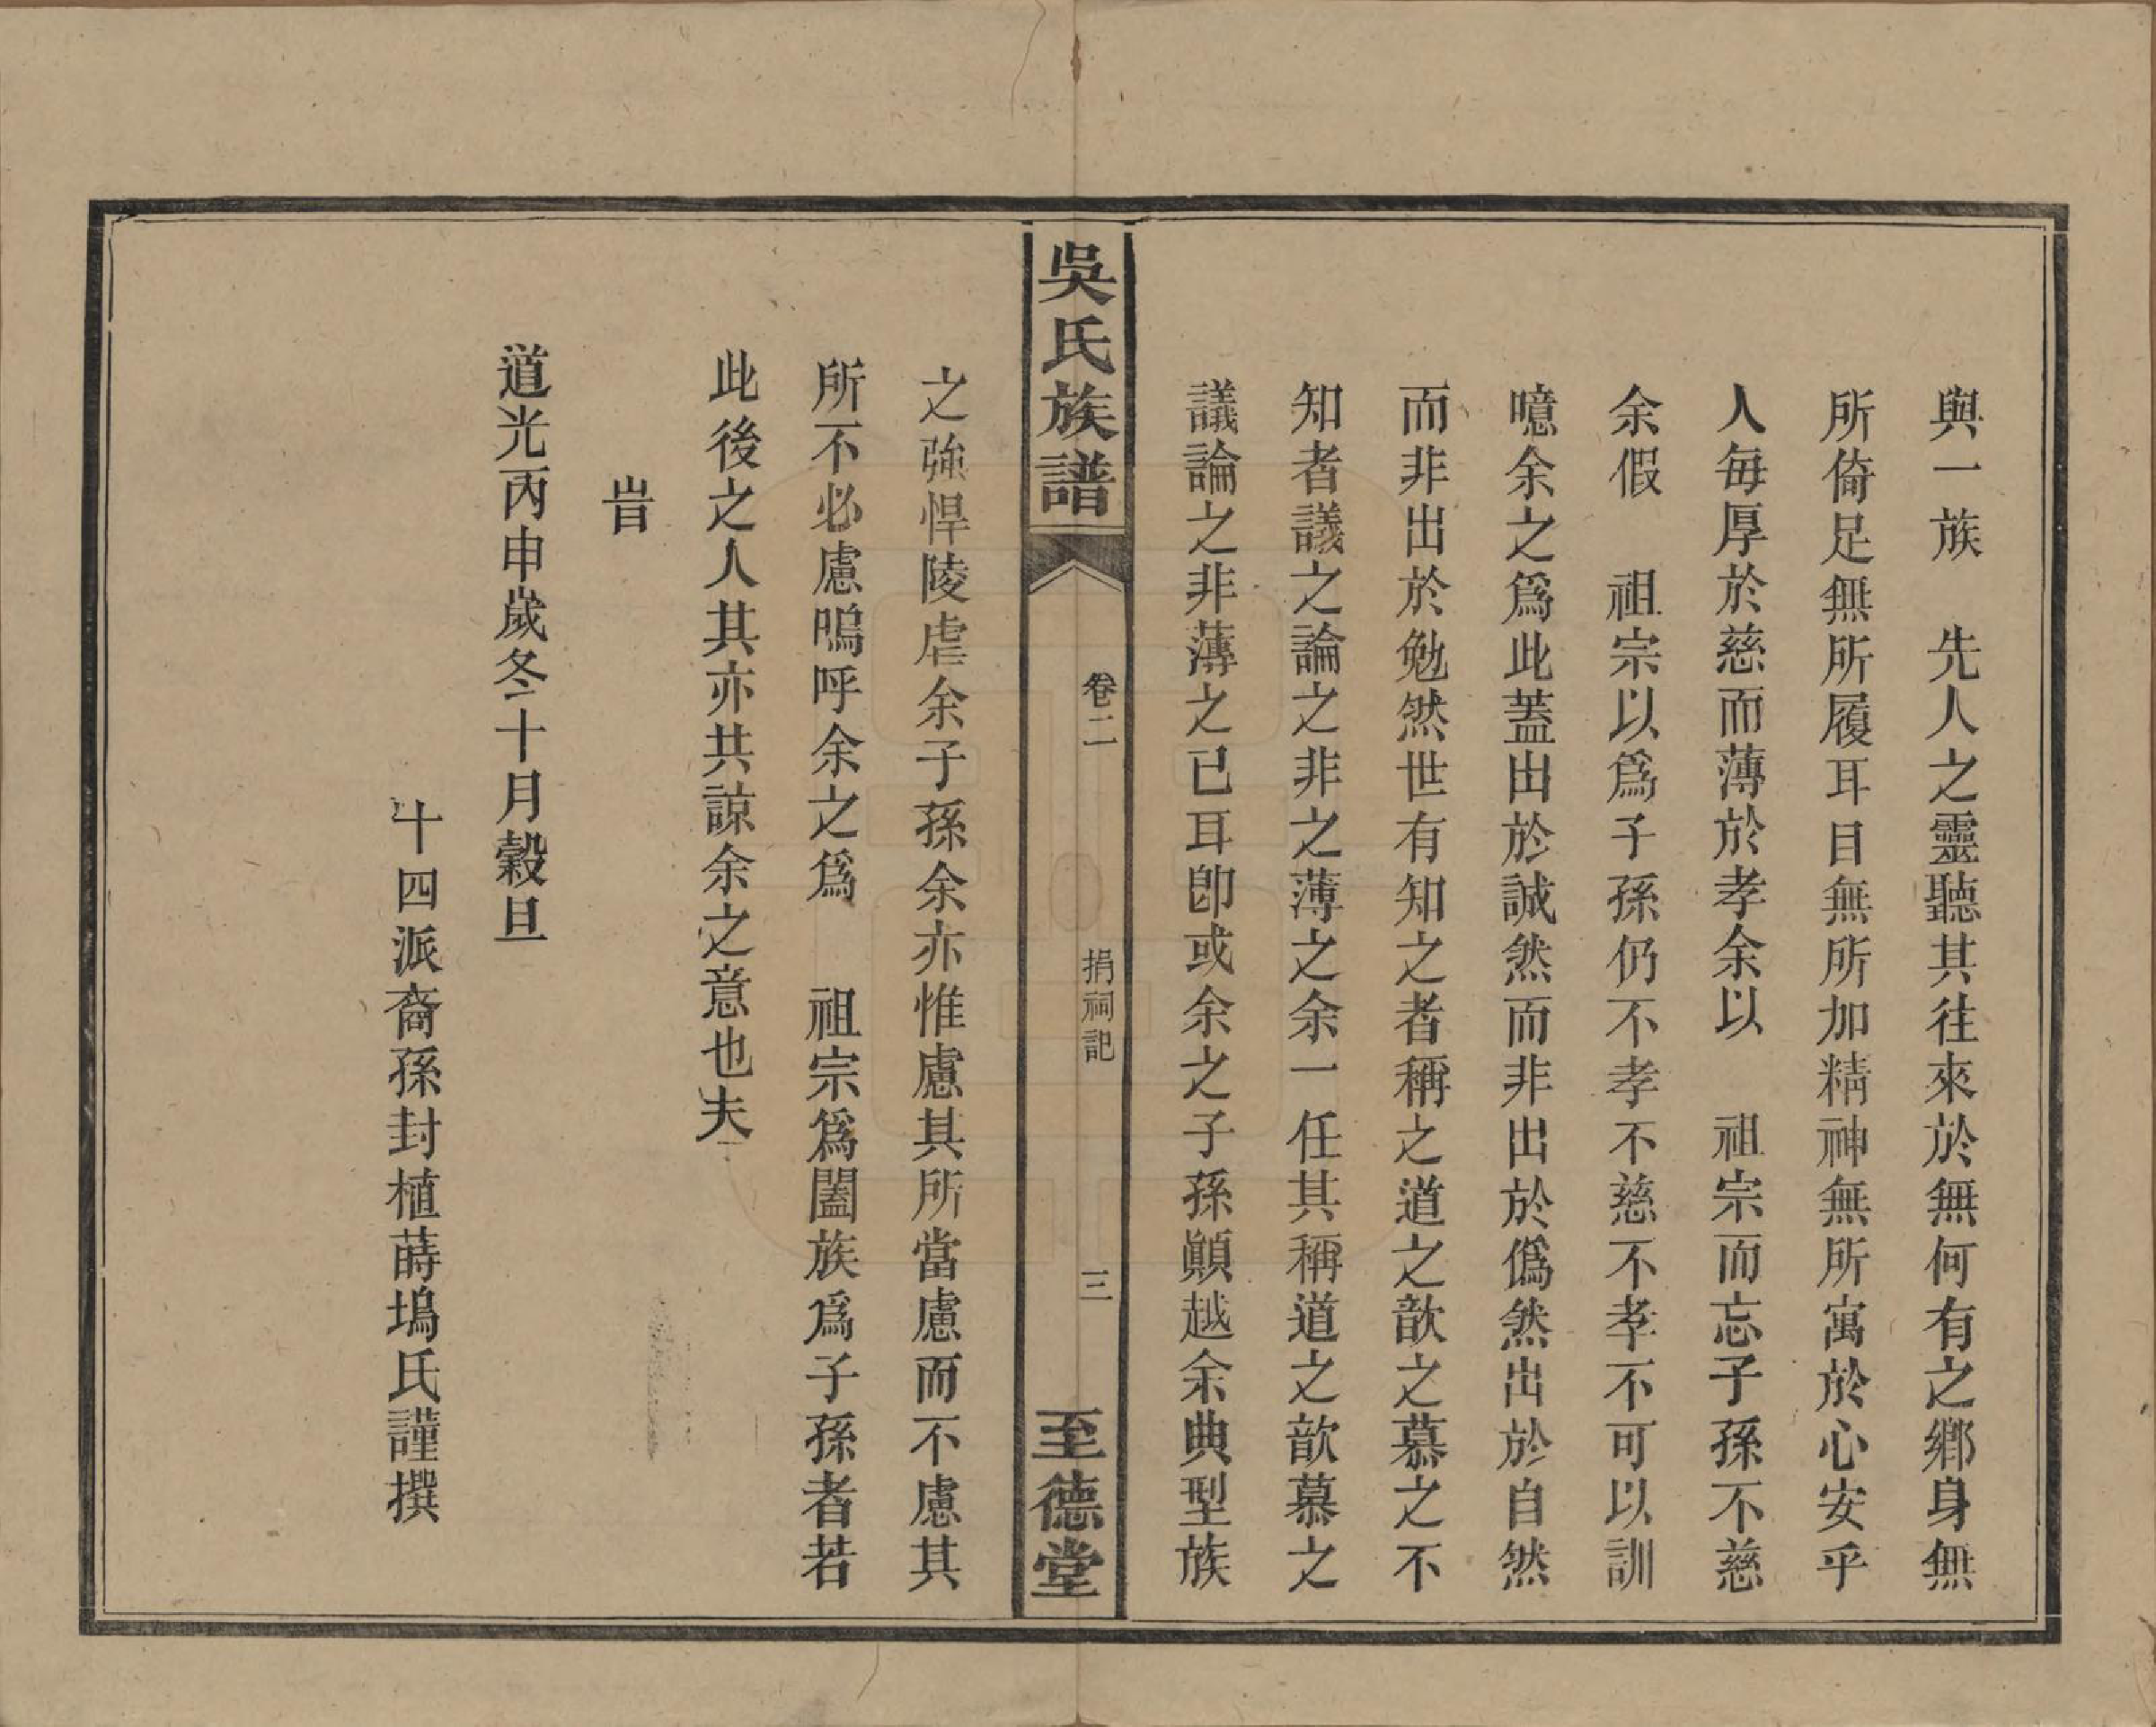 與一族　先人之靈聽其往來於無何有之鄉身無
所倚足無所履耳目無所加精神無所寓於心安乎
人每厚於慈而薄於孝余以　祖宗而忘子孫不慈
余假　祖宗以爲子孫仍不孝不慈不孝不可以訓
噫余之爲此蓋出於誠然而非出於僞然出於自然
而非出於勉然世有知之者稱之道之歆之慕之不
知者議之論之非之薄之余一任其稱道之歆慕之
議論之非薄之已耳卽或余之子孫顚越余典型族
吳氏族譜
卷二
捐祠記
三
至德堂
之強悍陵虐余子孫余亦惟慮其所當慮而不慮其
所不必慮嗚呼余之爲　祖宗爲闔族爲子孫者若
此後之人其亦共諒余之意也夫
旹
道光丙申歲冬十月穀旦
十四派裔孫封植蒔塢氏謹撰